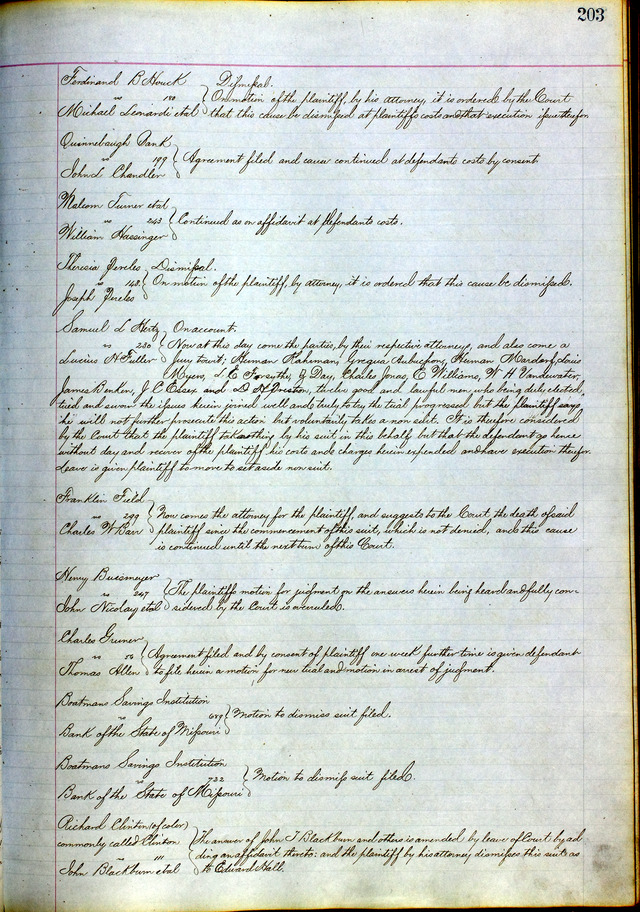 203
Ferdinand B Houck Dismissal.
vs 180 On motion of the plaintiff, by his attorney, it is ordered by the Court
Michael Leonardi etal that this cause be dismissed at plaintiffs costs and that execution issue therefor
Quinnebaugh Bank
vs 199 Agreement filed and cause continued at defendants costs by consent
John L Chandler
Malcom Turner etal
vs 243 Continued as on affidavit at defendants costs.
William Hassinger
Theresia Dismissal.
vs 148 On motion of the plaintiff, by attorney, it is ordered that this cause be dismissed.
Joseph
Samuel L Hertz On account.
vs 230 Now at this day come the parties, by their respective attorneys, and also come a
Lucius H Fuller Jury to wit; Herman Herman Louis
Myers, L E Forsythe, Day, Charles Jonas, E Williams, W H Vandewater,
James Benken, J C Essex and D H Priston, twelve good and lawful men who being duly elected,
tried and sworn the issues herein joined well and truly to try the trial progressed but the plaintiff says
he will not further prosecute this action but voluntarily takes a non suit. It is therefore considered
by the Court that the plaintiff take nothing by his suit in this behalf but that the defendant go hence
without day and recover of the plaintiff his costs and charges herein expended and have execution therefor.
Leave is given plaintiff to move to set aside non suit.
Franklin Field
vs 299 Now comes the attorney for the plaintiff, and suggests to the Court the death of said
Charles W Barr plaintiff since the commencement of this suit, which is not denied, and this cause
is continued until the next term of this Court.
Henry Bussmeyer
vs 247 The plaintiffs motion for judgment on the answers herein being heard and fully con-
John Nicolay etal sidered by the Court is overruled.
Charles Greiner
vs 56 Agreement filed and by consent of plaintiff one week further time is given defendant
Thomas Allen to file herein a motion for new trial and motion in arrest of judgment.
Boatmans Savings Institution
vs 679 Motion to dismiss suit filed.
Bank of the State of Missouri
Boatmans Savings Institution
vs 732 Motion to dismiss suit filed.
Bank of the State of Missouri
Richard Clinton (of color)
commonly called Clinton The answer of John T Blackburn and others is amended by leave of Court by ad
vs 111 ding an affidavit thereto: and the plaintiff by his attorney dismisses this suit as
John Blackburn etal to Edward Hall.